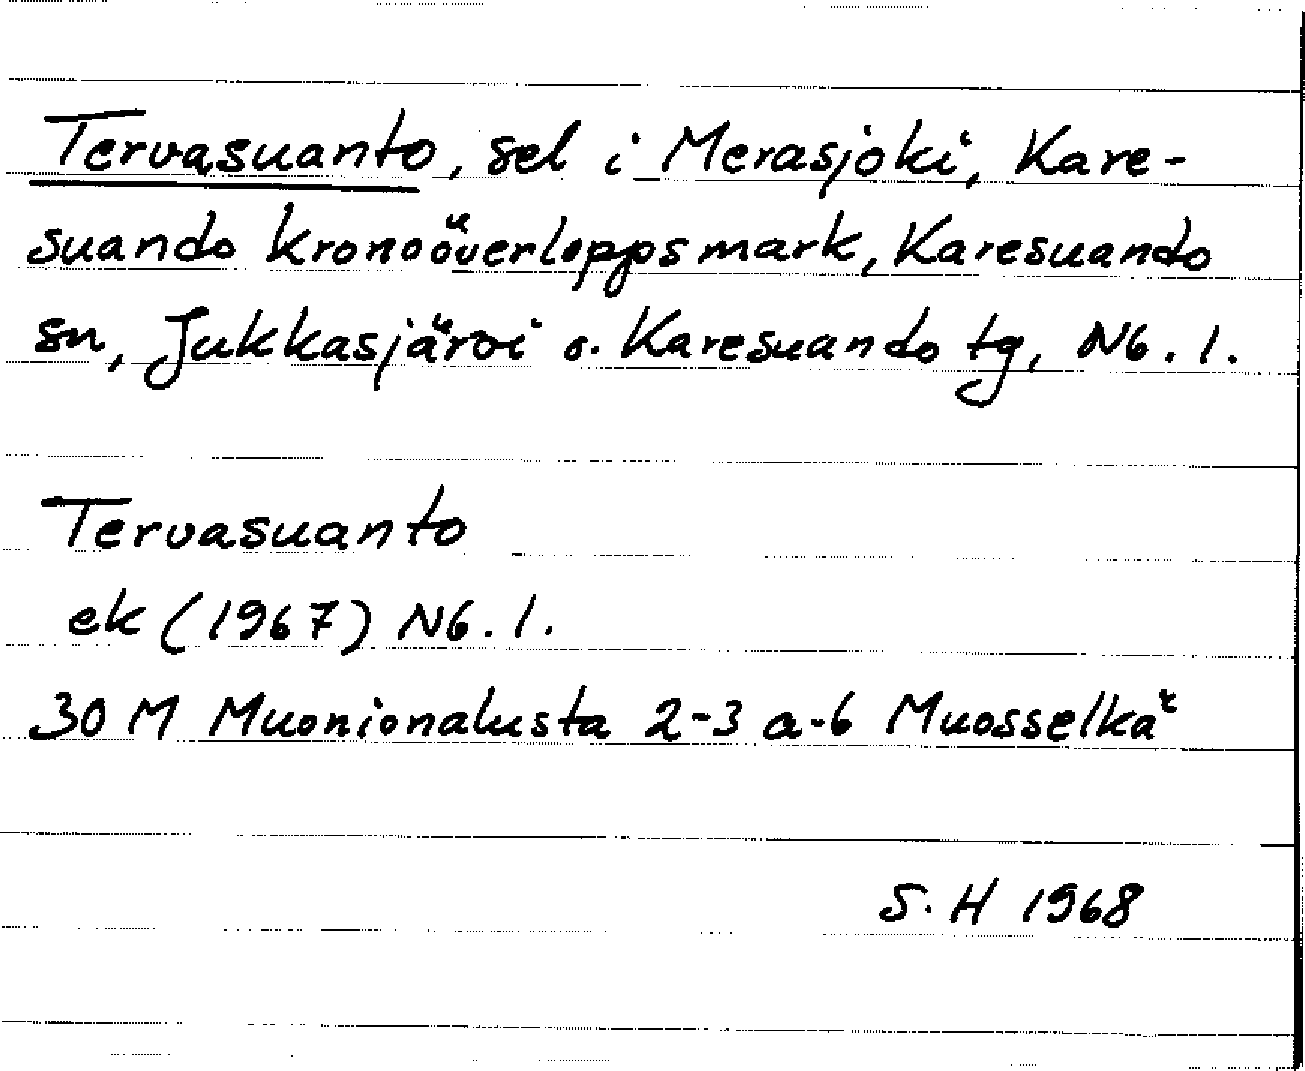 Tervasuanto, sel i Merasjoki, Kare-
suando kronoöverloppsmark, Karesuando
sn, Jukkasjärvi o. Karesuando tg, Nb. l.
Tervasuanto
ek (1967) Nb. l.
30 M Muonionalusta 2-3 a-b Muosselkä
S. H 1968